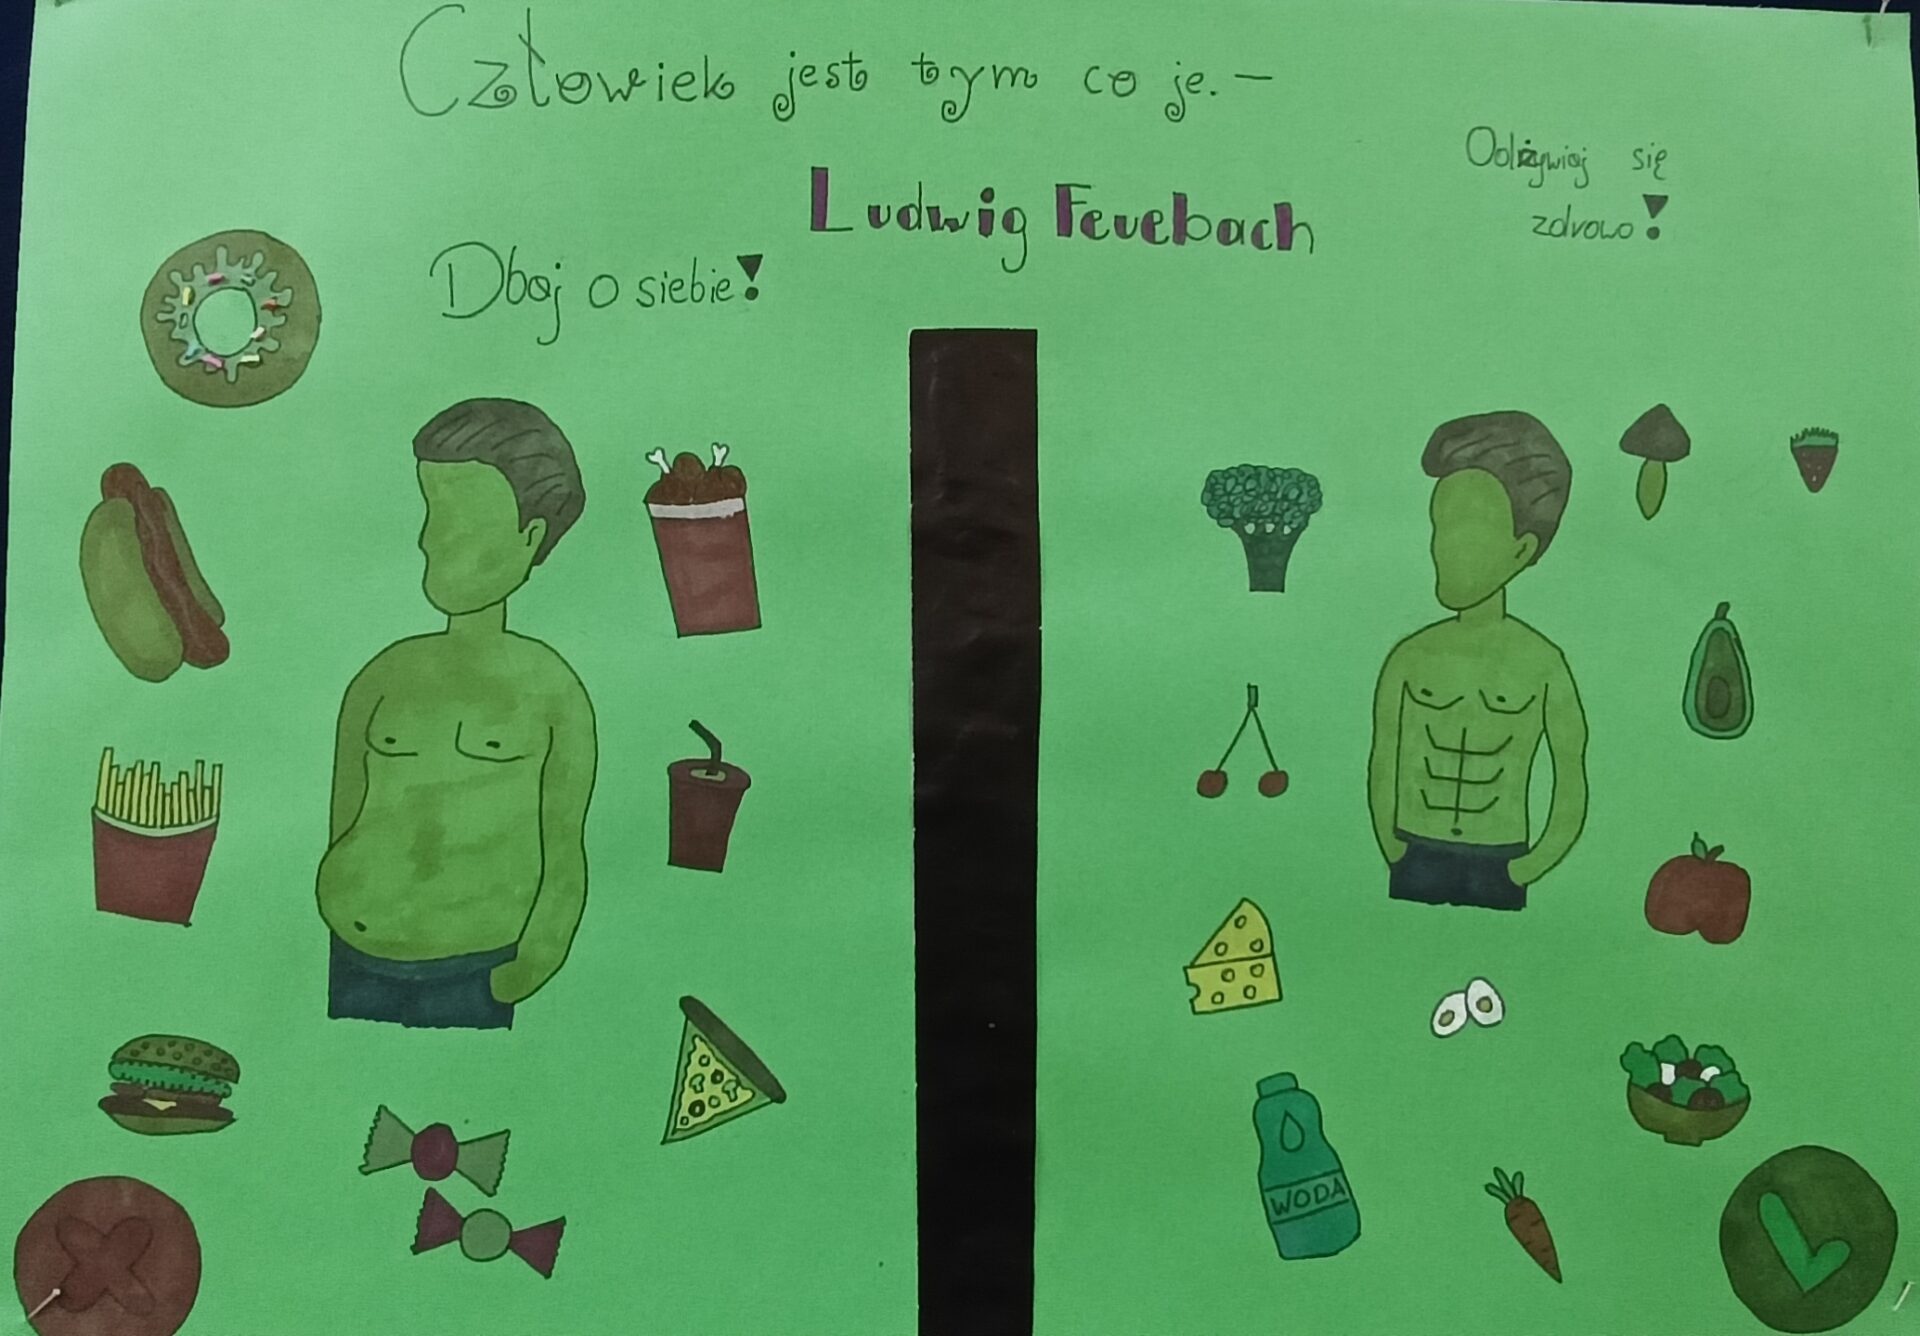 Człowiek jest tym co je. –
Ludwig Feuebach
Odżywiaj się
zdrowo!
Dbaj o siebie!
WODA